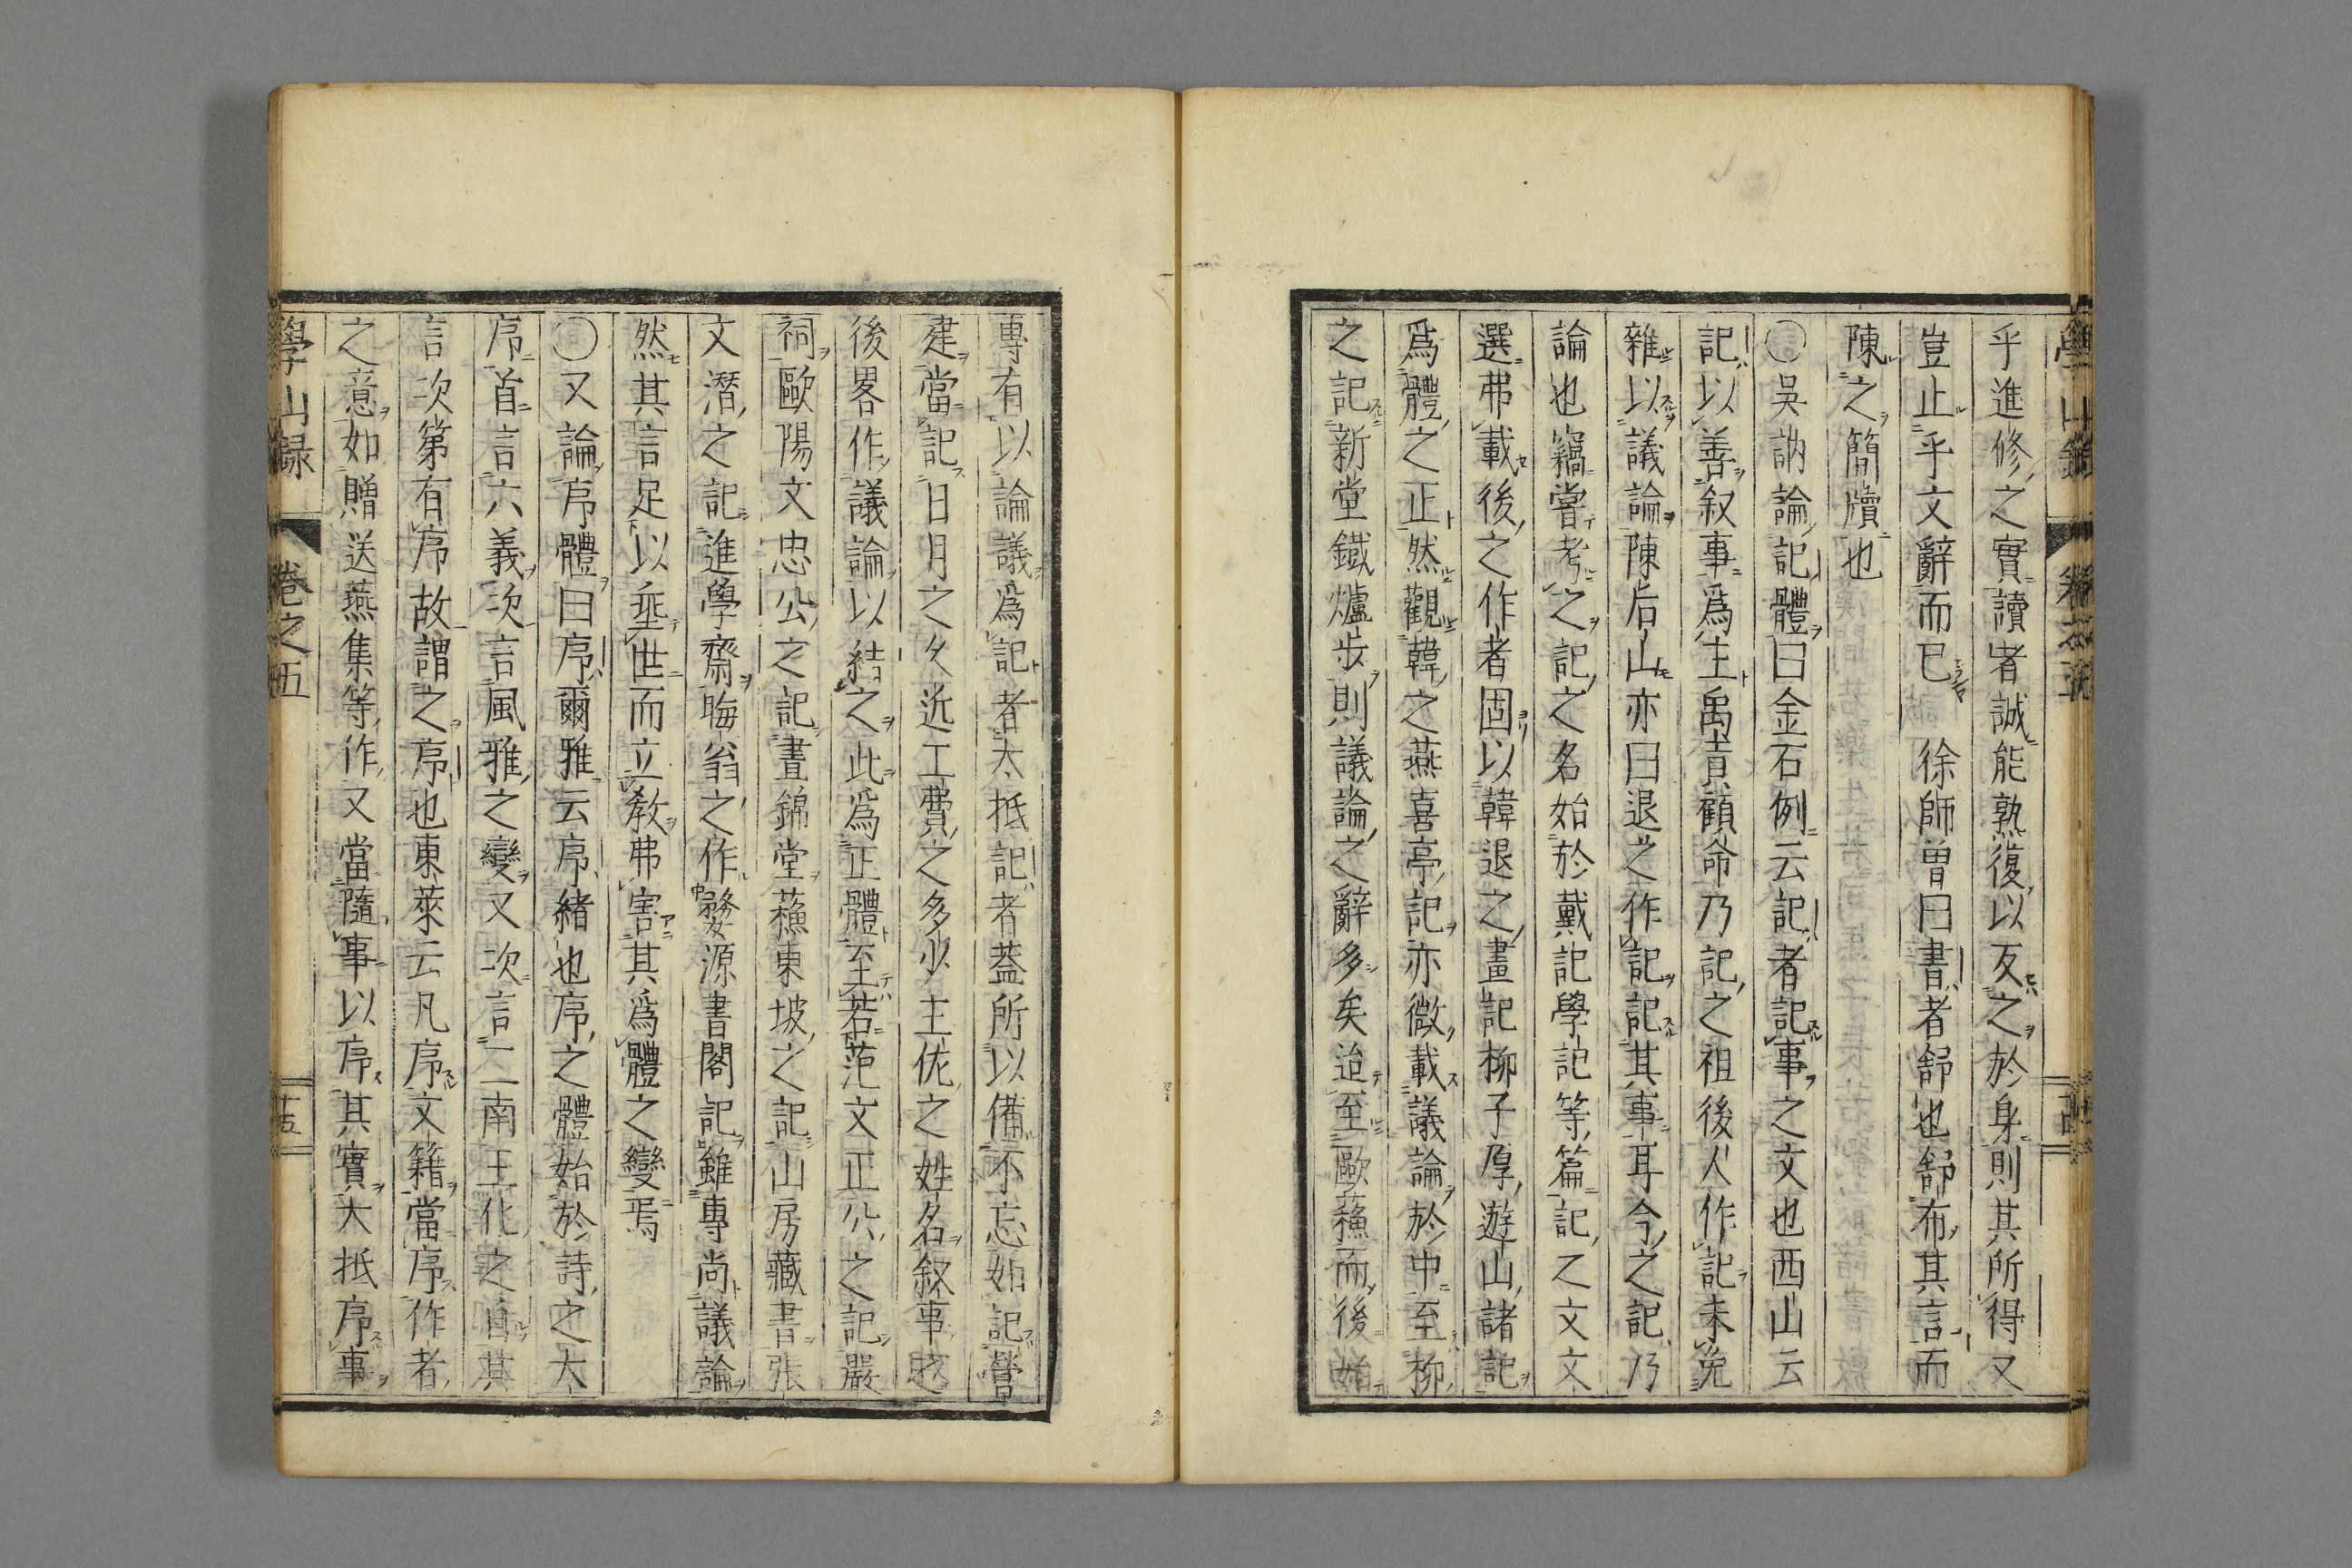 乎進修之實讀者誠能熟復以反之於身則其所得又
豈止乎文辭而已 徐師曾曰書者舒也舒布其言而
陳之簡牘也
○吳訥論記體曰金石例云記者記事之文也西山云
記以善叙事爲主禹貢顧命乃記之祖後人作記未免
雜以議論陳后山亦曰退之作記記其事耳今之記乃
論也竊嘗考之記之名始於戴記學記等篇記之文文
選弗載後之作者固以韓退之畫記柳子厚遊山諸記
爲體之正然觀韓之燕喜亭記亦微載議論於中至柳
之記新堂鐵爐步則議論之辭多矣迨至歐蘇而後始
專有以論議爲記者大抵記者葢所以備不忘如記營
建當記日月之久近工費之多少主佐之姓名叙事之
後畧作議論以結之此爲正體至若范文正公之記嚴
祠歐陽文忠公之記晝錦堂蘇東坡之記山房藏書張
文潛之記進學齋晦翁之作婺源書閣記雖專尚議論
然其言足以垂世而立教弗害其爲體之變焉
○又論序體曰序爾雅云序緒也序之體始於詩之大
序首言六義次言風雅之變又次言二南王化之自其
言次第有序故謂之序也東萊云凡序文籍當序作者
之意如贈送燕集等作又當隨事以序其實大抵序事
學山録 卷之五 十五